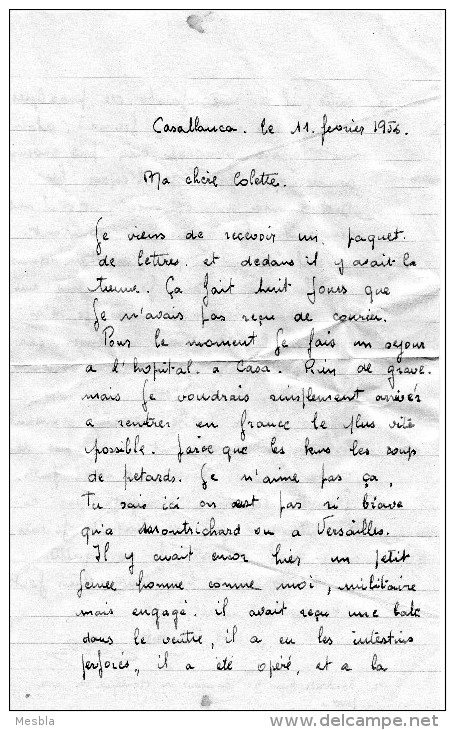 Casablanca. le 11. fevrier 1956.
Ma chère Colette.
Je viens de recevoir un paquet.
de lettres. et dedans il y avait la
tienne. Ça fait huit Jours que
Je n'avais pas reçu de courrier.
Pour le moment Je fais un sejour
a l'hopital. a Casa. Rien de grave.
mais Je voudrais simplement arriver
a rentrer en france le plus vite
possible. parce que les les coups
de petards. Je n'aime pas ça,
Tu sais ici on est pas si brave
qu'a Montrichard ou a Versailles.
Il y avait encor hier un petit
Jeune homme comme moi, militaire
mais engagé. il avait reçu une balle
dans le ventre, il a eu les intestins
perforés, il a été opéré, et a la
Mesbla
www.delcampe.net